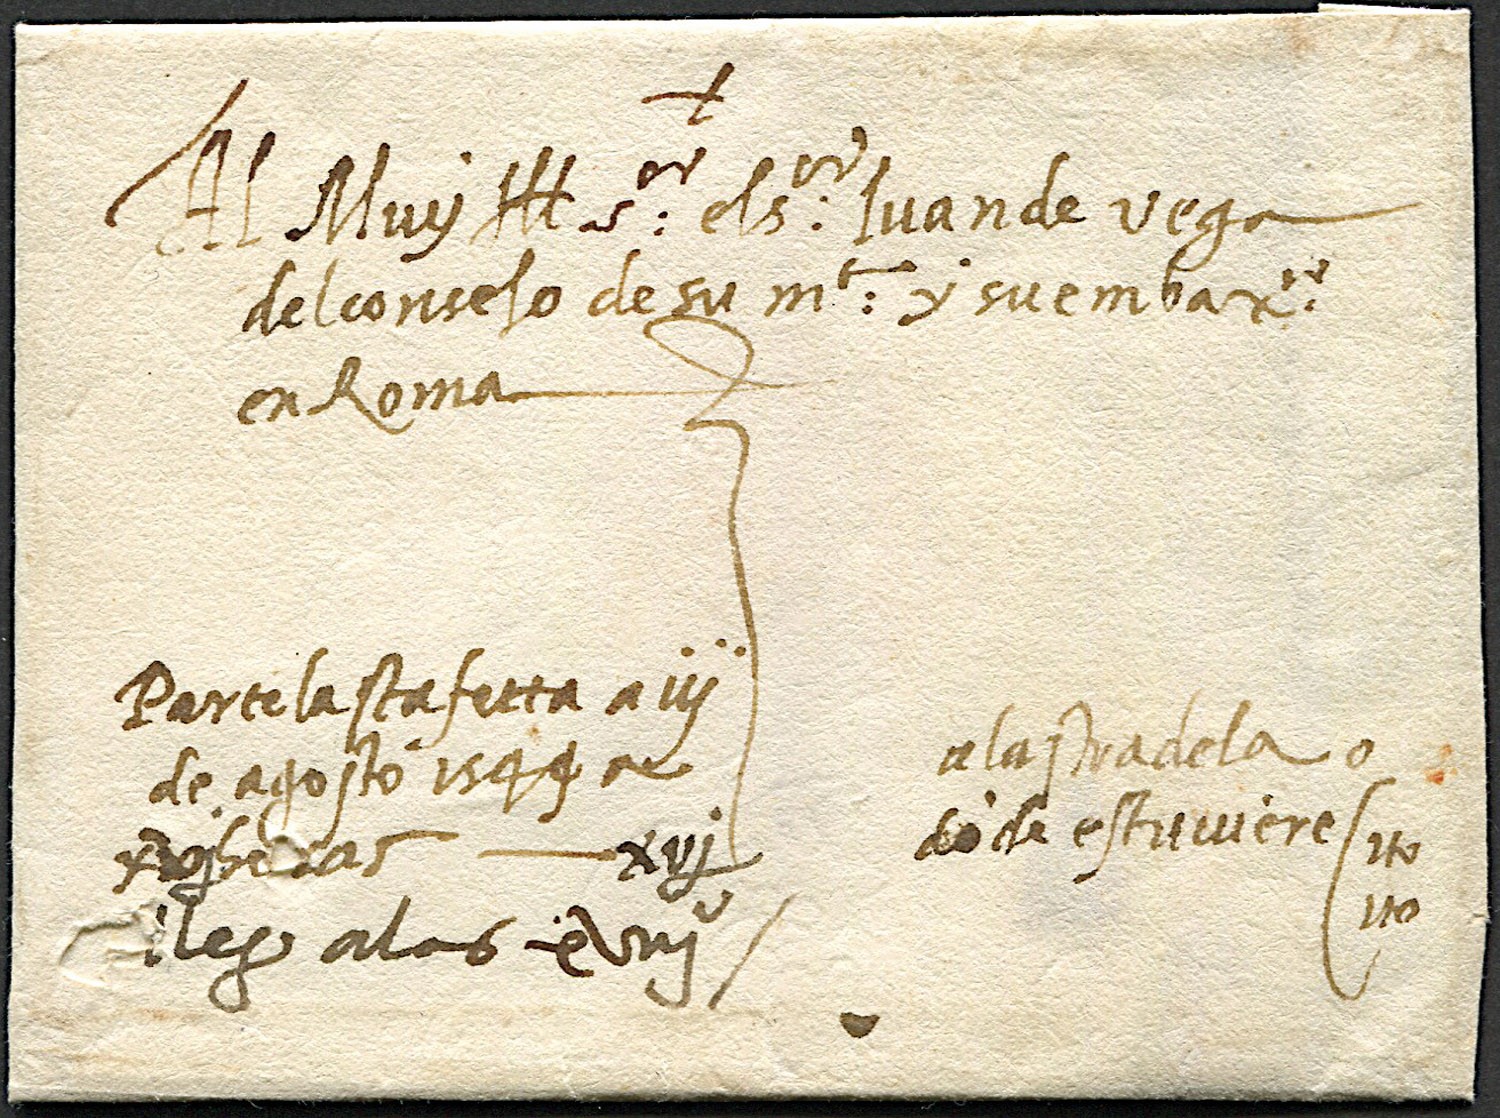 Al Muy Ill sor: el sor: Juan de vega
del consejo de su mt: y su embaxor:
en Roma
Parte la stafetta a iij
de agosto 1544 a
xvj horas — xvj
lleg a las
a la stradela o
dode estuuiere
ito
ito